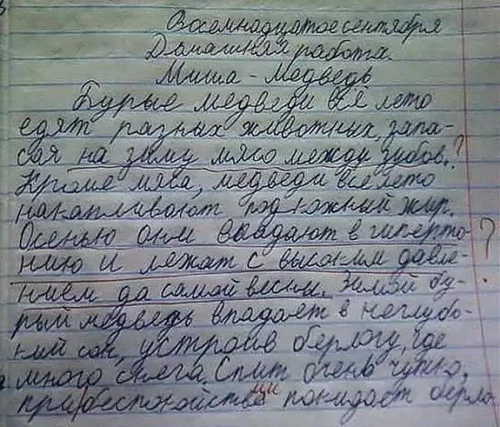 Восемнадцатое сентября
Домашняя работа.
Миша - Медведь
Бурые медведи всё лето
едят разных животных, запа-
сая на зиму мясо между зубов. ?
Кроме мяса, медведи всё лето
накапливают подкожный жир.
Осенью они впадают в гиперто-
нию и лежат с высоким давле- ?
нием до самой весны. Зимой бу-
рый медведь впадает в неглубо-
кий сон, устроив берлогу, где
много снега. Спит очень чутко,
при беспокойстве покидает берло